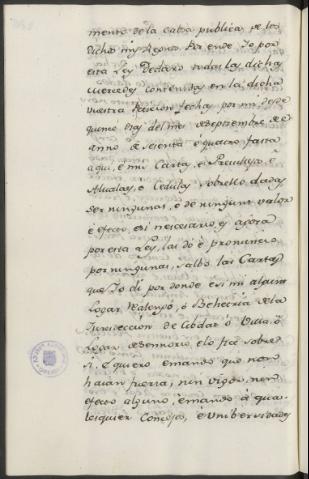 mento de la cassa publica, de los
dichos mis Reynos. Por ende Yo por
esta Ley Declaro todas las dichas
mercedes contenidas en la dicha
vuestra Peticion fechas por mi desde
quince dias del mes de septiembre de el
anno de sesenta é quatro fasta
aqui, é mis Cartas, é Previlegios, é
Alvalaes, é Cedulas, sobrello dadas
ser ningunas, é de ningun valor
é efecto, é si necesario, es agora
por esta Ley, las do é pronuncio
por ningunas, salbo las Cartas
que Yo di por donde esimi algun
Logar Realengo, ó Behetria de la
Jurisdiccion de Cibdad ó Villa, ó
Logar de Sennorio, ello fice sobre
si, é quiero, é mando que non
haian fuerza, nin vigor, nin
efecto alguno, é mando á qua-
lesquier Concejos, é Unibersidades